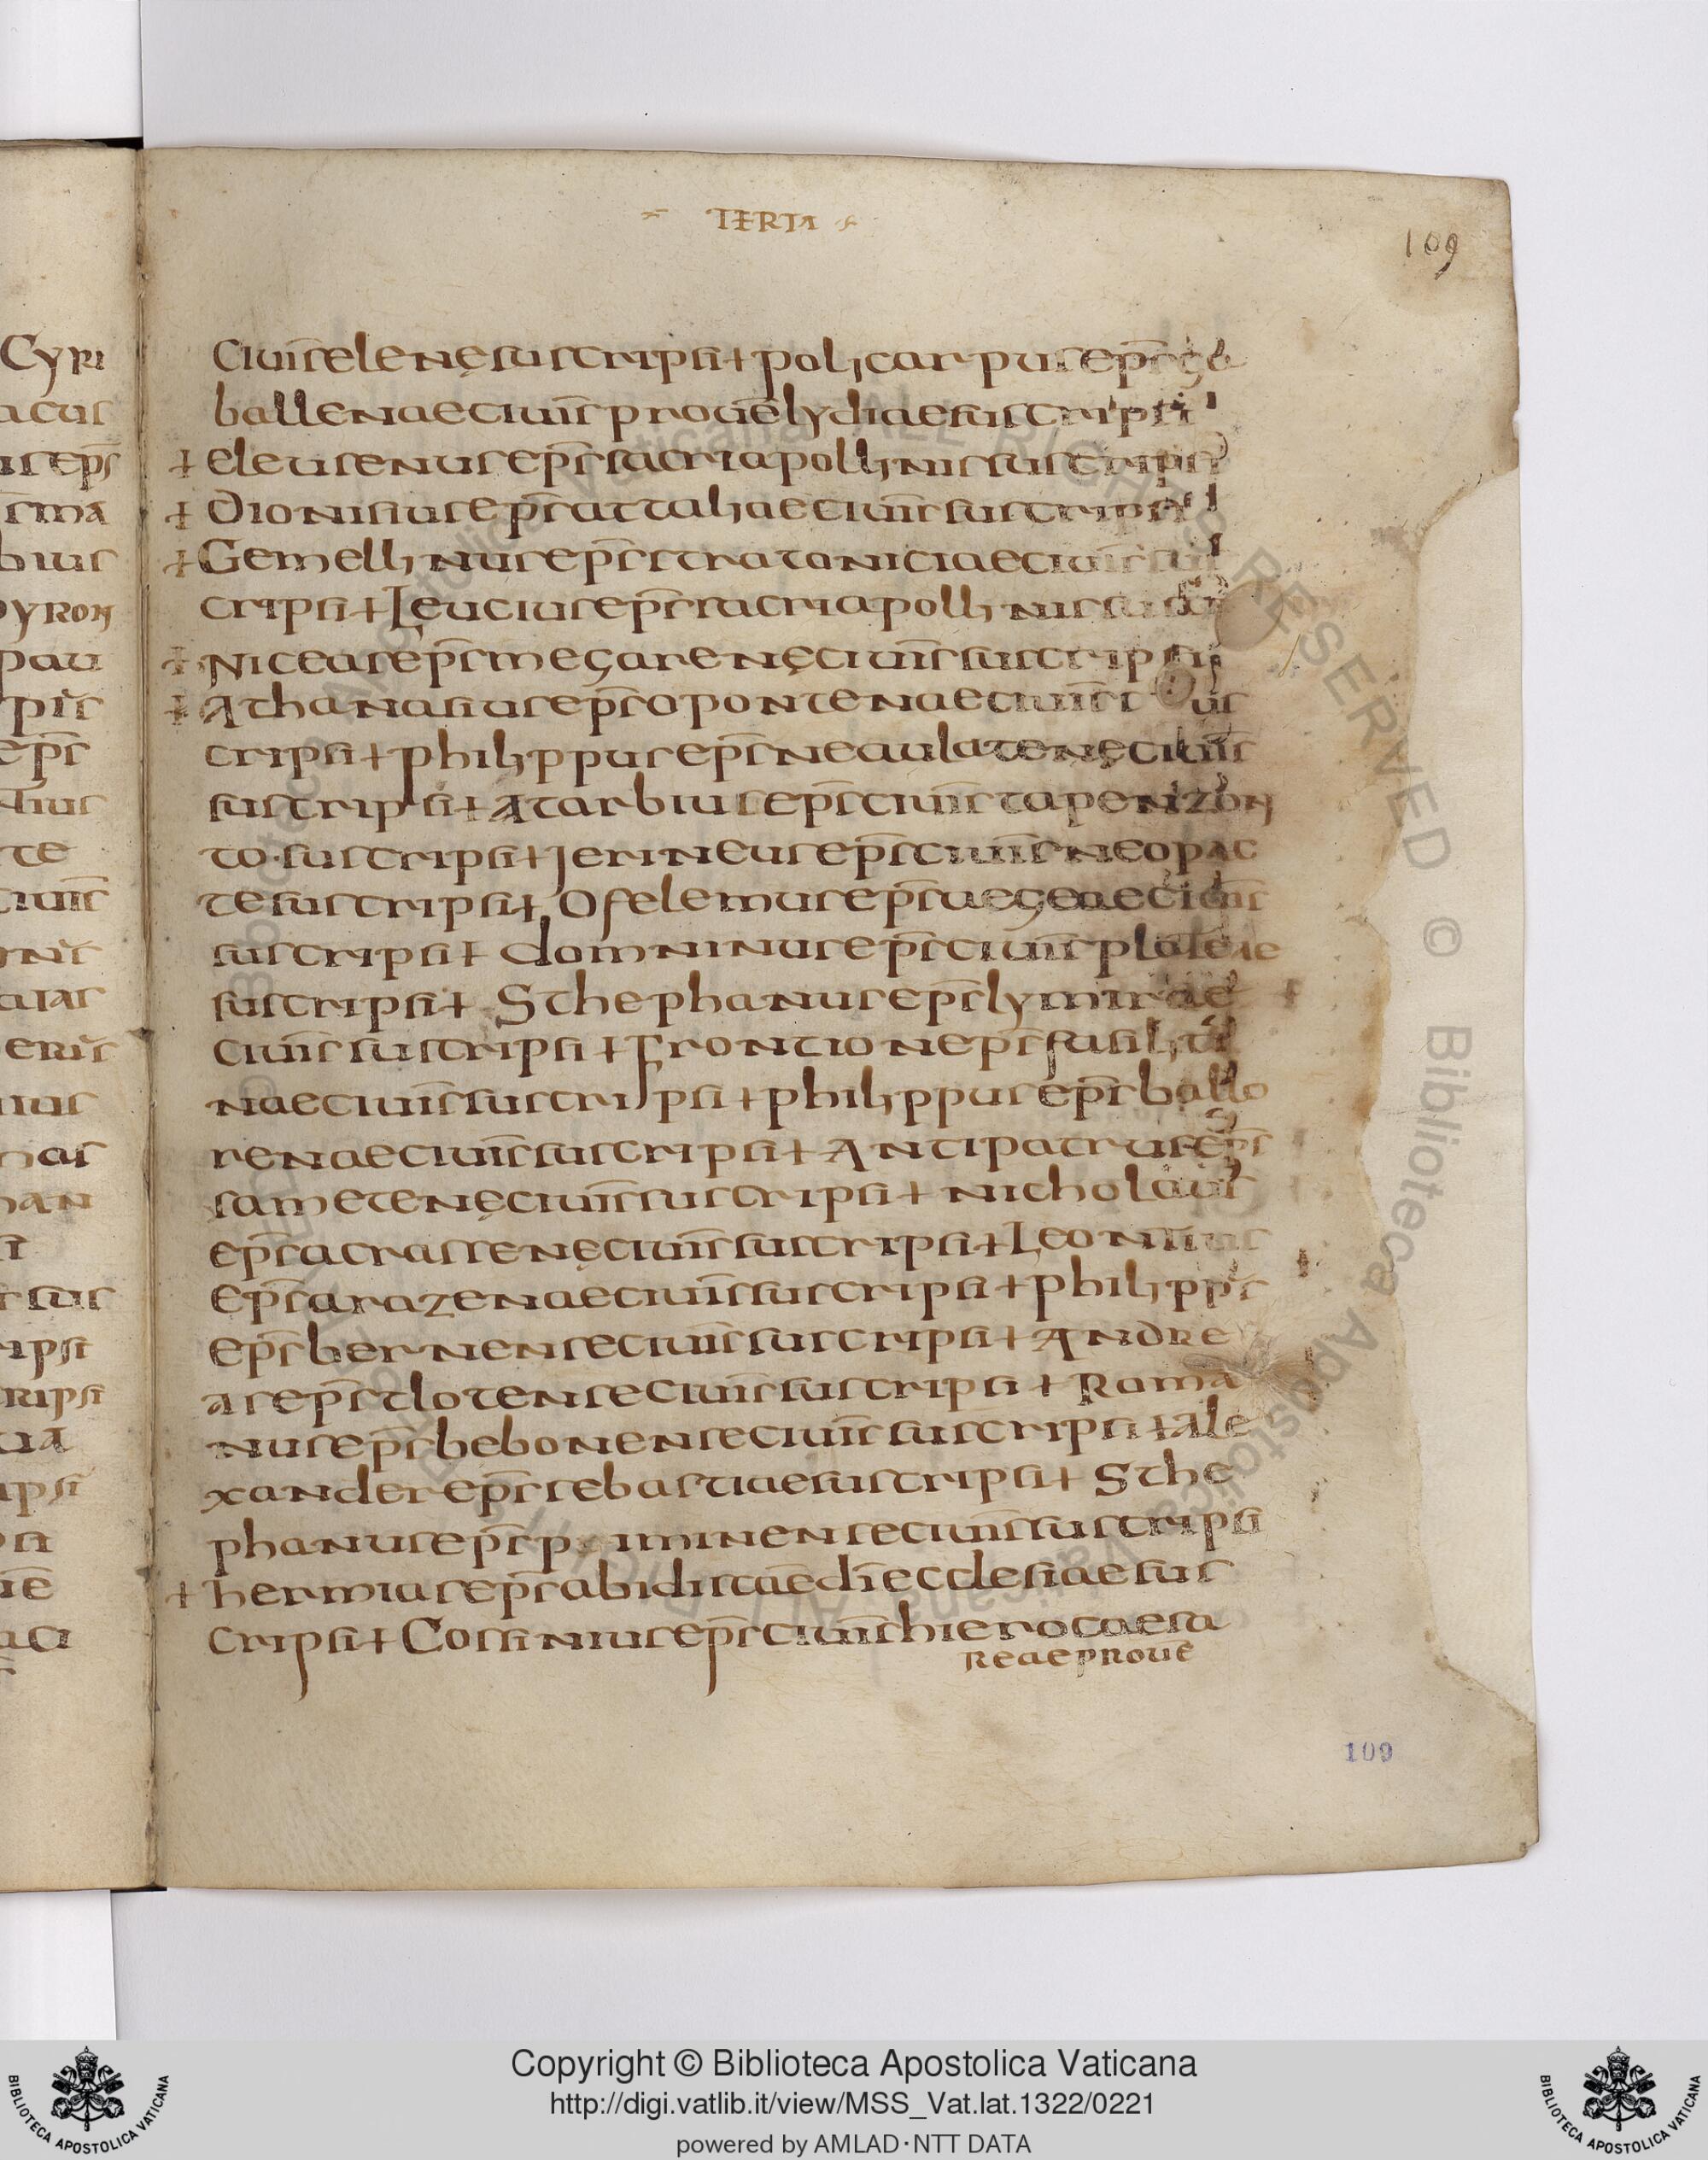 TERTIA
109
Cyri
civīs elenę suscripsi + policarpus ep̄s ga
acus
ballenae civīs provīē lydiae suscripsi
us ep̄s
+ eleusenus ep̄s sacri apollinis suscripsi
s̄ma
+ Dionisius ep̄s attaliae civīs suscripsi
bius
+ Gemellinus ep̄s stratoniciae civīs sus
pyron
cripsi + Leucius ep̄s sacri apollinis sus
pau
+ Niceas ep̄s megarenę civīs suscripsi
+ Athanasius ep̄s opontenae civīs sus
ep̄s
cripsi + philippus ep̄s neaulatenę civīs
suscripsi + Atarbius ep̄s civīs tapenizon
te
to suscripsi + Jerineus ep̄s civīs neopac
civīs
te suscripsi + Ofelemus ep̄s aegeae civīs
suscripsi + domninus ep̄s civīs plateae
suscripsi + Sthephanus ep̄s lymirae
civīs suscripsi + Frontion ep̄s fasilit
nae civīs suscripsi + philippus ep̄s ballo
renae civīs suscripsi + Antipatrus ep̄s
sametenę civīs suscripsi + nicholaus
ep̄s acrassenę civīs suscripsi + Leontius
ep̄s arazenae civīs suscripsi + philipp̄s
ripsi
ep̄s bernense civīs suscripsi + Andre
ripsi
as ep̄s tlotense civīs suscripsi + Roma
nus ep̄s bebonense civīs suscripsi + ale
ipsi
xander ep̄s sebastiae suscripsi + Sthe
phanus ep̄s p iminense civīs suscripsi
+ hermias ep̄s abidis cāē dī ecclesiae sus
cripsi + Cossinius ep̄s civīs hierocaesa
reae provē
109
Copyright © Biblioteca Apostolica Vaticana
http://digi.vatlib.it/view/MSS_Vat.lat.1322/0221
powered by AMLAD·NTT DATA
BIBLIOTECA APOSTOLICA VATICANA
BIBLIOTECA APOSTOLICA VATICANA